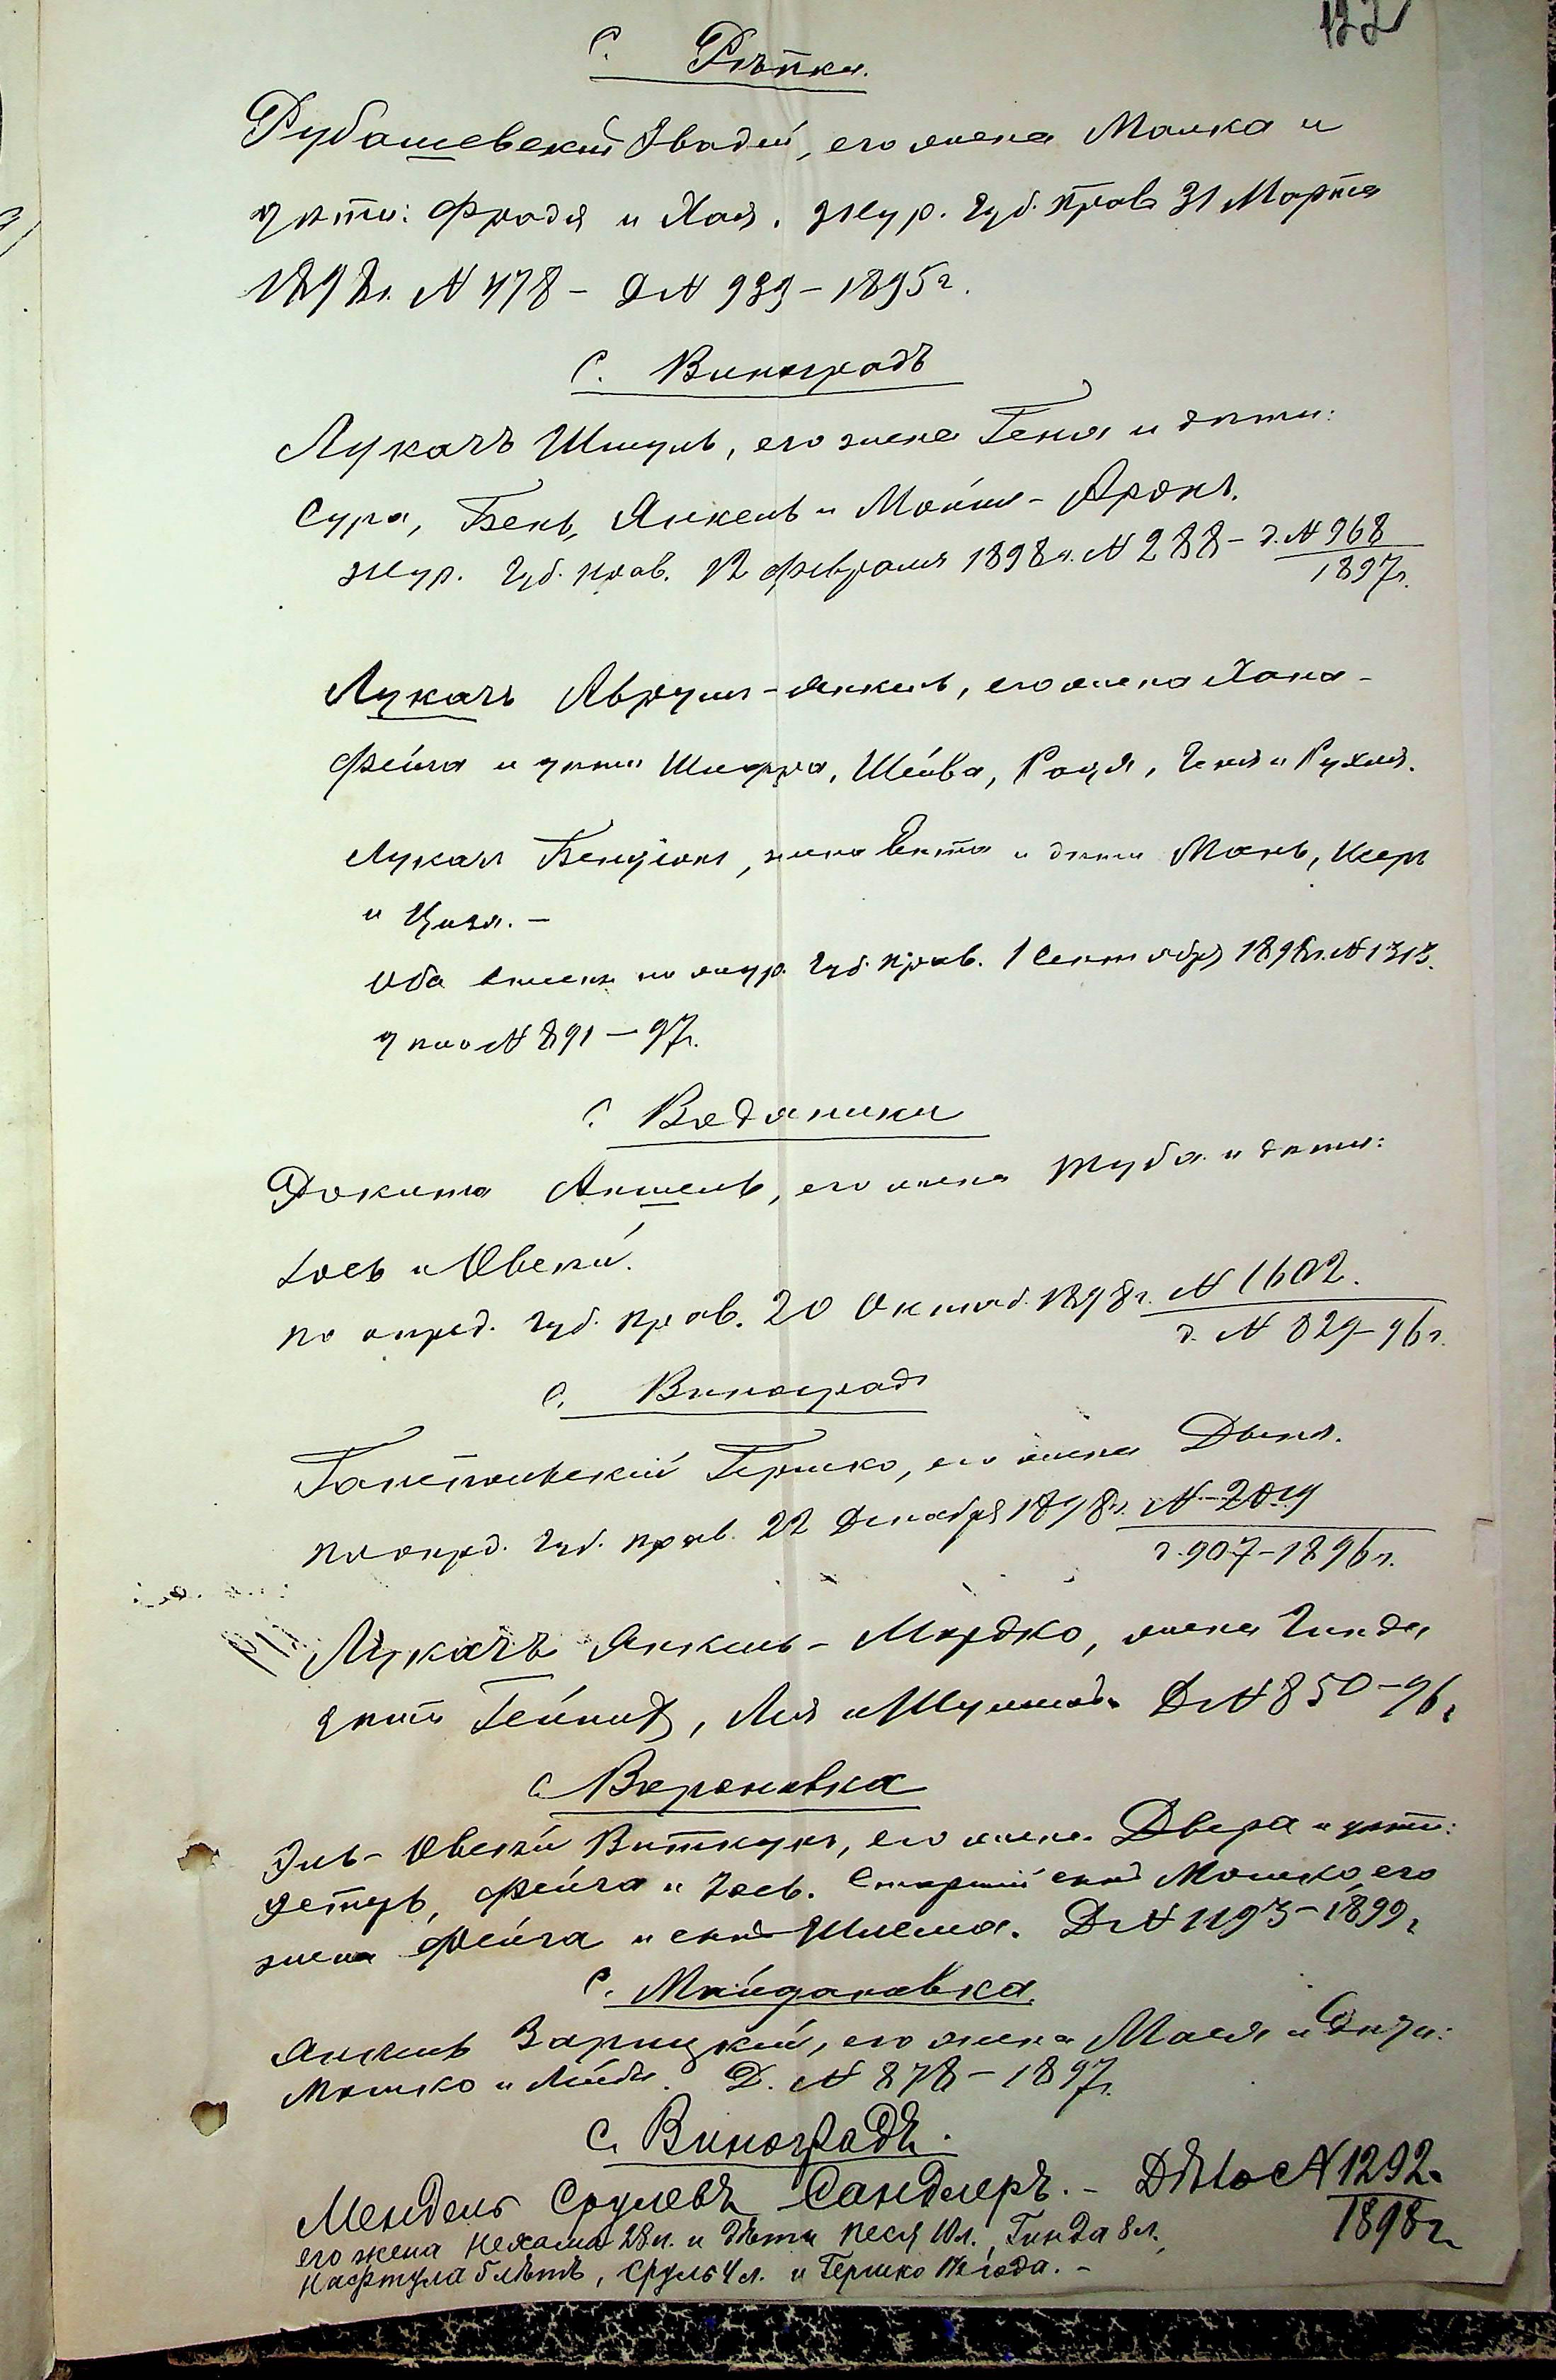 122
с. Рѣпки.
Рубашевскій Овадій, его жена Малка и
дѣти: Фрадя и Хая. Жур. Губ. Прав. 31 Марта
1898г. N 478 – Д N 939 – 1895г.
С. Виноградъ
Лукачъ Шмуль, его жена Геня и дѣти:
Сура, Бенъ, Янкель и Мойше-Аронъ.
Жур. Губ. прав. 12 февраля 1898г. N 288 – д. N 968
1897г.
Лукачъ Аврумъ-Янкель, его жена Хана-
Фейга и дѣти Шифра, Шейва, Рося, Геня и Рухля.
Лукачъ Бенціонъ, жена Ента и дѣти Мань,
и Цизя. –
Оба внесены по жур. Губ. прав. 1 Сентября 1898г. N 1313.
дѣло N 891 – 97г.
С. Водяники
Аншель, его жена Туба и дѣти:
Іось и Овсей.
по опред. Губ. прав. 20 Октяб. 1898г. N 1602.
д. N 829–96г.
с. Виноградъ
Гершко, его жена Двыня.
по опред. Губ. прав. 22 Декабря 1898г. N – 2019
д. 907–1896г.
Лукачъ Янкель-Мордко, жена Гинда,
дѣти Гейнихъ, Лея и Д N 850–96г
с. Вороновка
Эль-Овсей Виткунъ, его жена Двера и дѣти:
Эстеръ, Фейга и Іось. Старшій сынъ Мошко, его
жена Фейга и сынъ Шлема. Д N 1193–1899г
с. Майдановка.
Янкель Зарицкій, его жена Мася и дѣти:
Мошко и Лейба. Д. N 878 – 1897г.
с. Виноградъ.
Мендель Срулевъ Сандлеръ. – Дѣло N 1292.
1898г.
его жена Нехама 28 л. и дѣти Песя 10 л., Гинда 8 л.,
Нафтула 5 лѣтъ, Сруль 4 л. и Гершко 1½ года. –